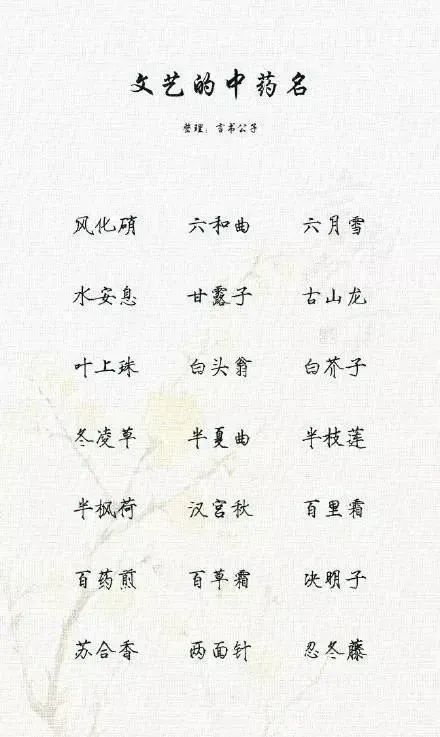 文艺的中药名
整理：言书公子
风化硝 六和曲 六月雪
水安息 甘露子 古山龙
叶上珠 白头翁 白芥子
冬凌草 半夏曲 半枝莲
半枫荷 汉宫秋 百里霜
百药煎 百草霜 决明子
苏合香 两面针 忍冬藤